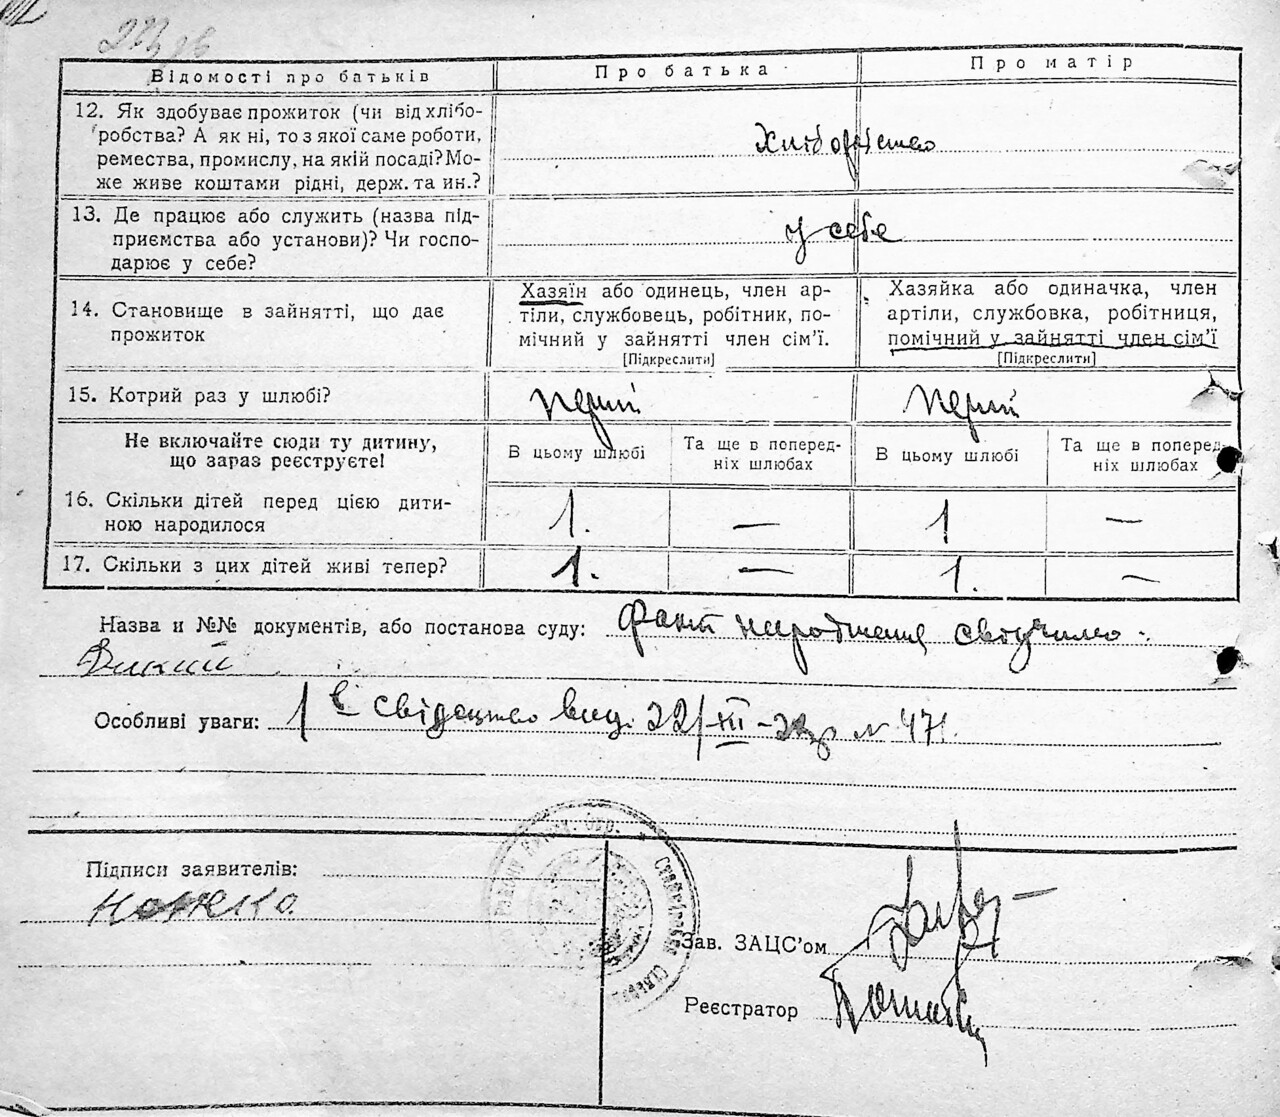 Відомості про батьків
Про батька
Про матір
12. Як здобуває прожиток (чи від хлібо-
робства? А як ні, то з якої саме роботи,
ремества, промислу, на якій посаді? Мо-
же живе коштами рідні, держ. та ин.?
Хліборобство
13. Де працює або служить (назва під-
приємства або установи)? Чи госпо-
дарює у себе?
у себе
14. Становище в зайнятті, що дає
прожиток
Хазяїн або одинець, член ар-
тіли, службовець, робітник, по-
мічний у зайнятті член сім’ї.
[Підкреслити]
Хазяйка або одиначка, член
артіли, службовка, робітниця,
помічний у зайнятті член сім’ї
[Підкреслити]
15. Котрий раз у шлюбі?
перший
перший
Не включайте сюди ту дитину,
що зараз реєструєте!
В цьому шлюбі
Та ще в поперед-
ніх шлюбах
В цьому шлюбі
Та ще в поперед-
ніх шлюбах
16. Скільки дітей перед цією дити-
ною народилося
1.
—
1
—
17. Скільки з цих дітей живі тепер?
1.
—
1.
—
Назва и №№ документів, або постанова суду: Факт народження свідчимо:
Дикий
Особливі уваги: свідоцтво вид. 22/III № 471.
Підписи заявителів:
Зав. ЗАЦС’ом
Реєстратор